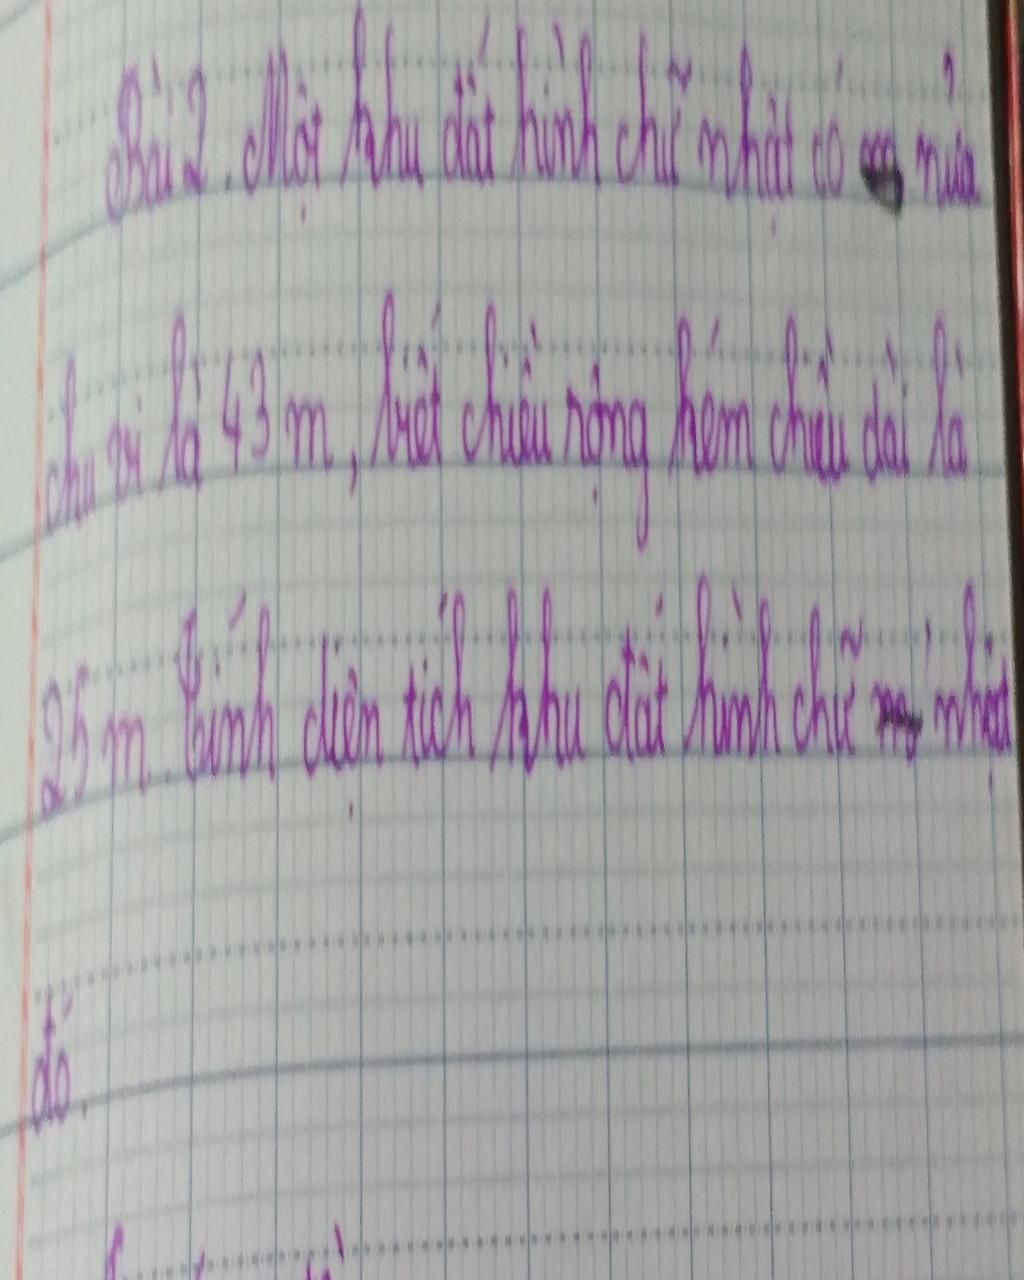 Bài 2. Một khu đất hình chữ nhật có nửa
chu vi là 43 m, biết chiều rộng kém chiều dài là
25 m. Tính diện tích khu đất hình chữ nhật
đó.